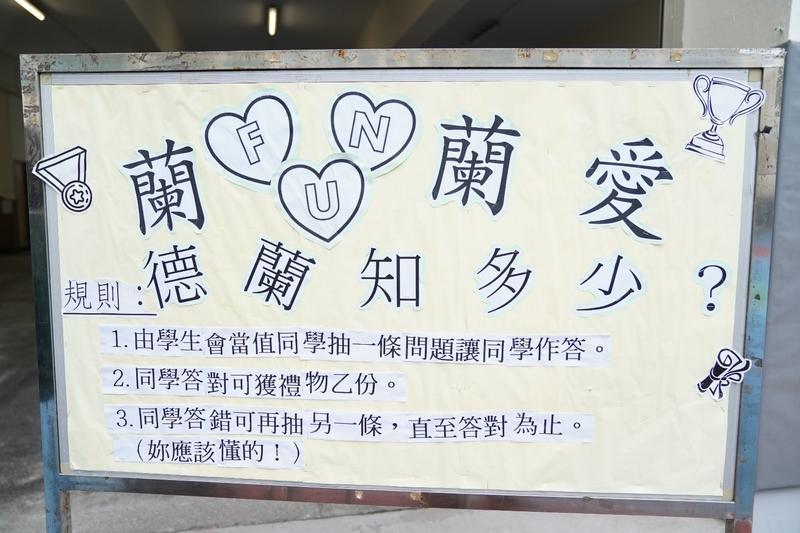 蘭 F U N 蘭 愛
德 蘭 知 多 少 ?
規則：
1.由學生會當值同學抽一條問題讓同學作答。
2.同學答對可獲禮物乙份。
3.同學答錯可再抽另一條，直至答對為止。
（妳應該懂的！）